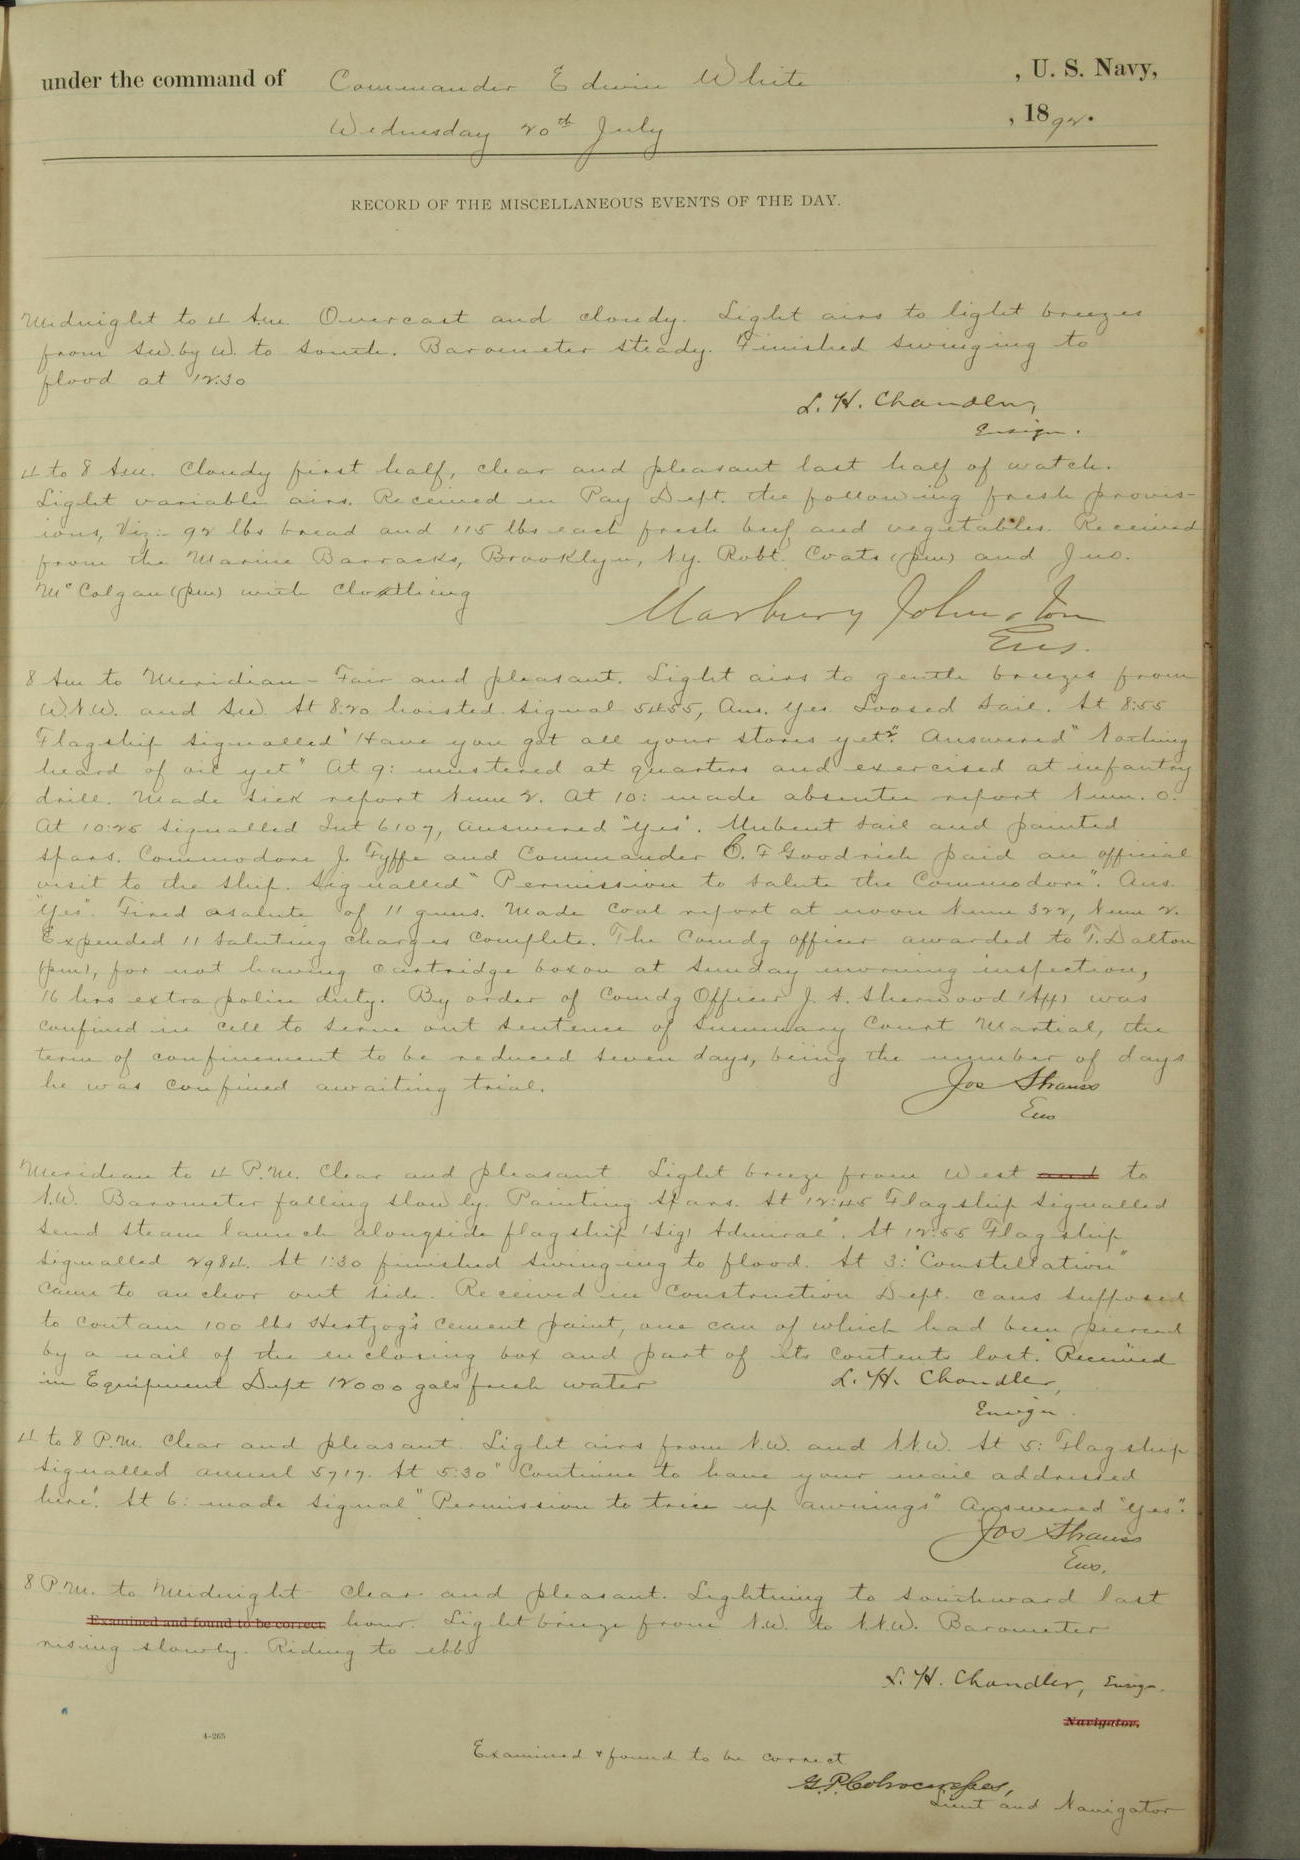 under the command of Commander Edwin White , U. S. Navy,
Wednesday 20th July , 1892.
RECORD OF THE MISCELLANEOUS EVENTS OF THE DAY.
Midnight to 4 Am. Overcast and cloudy. Light airs to light breezes
from SW. by W. to South. Barometer steady. Finished swinging to
flood at 12:30
L. H. Chandler,
Ensign.
4 to 8 Am. Cloudy first half, clear and pleasant last half of watch.
Light variable airs. Received in Pay Dept. the following fresh provis-
ions, Viz:- 92 lbs bread and 115 lbs each fresh beef and vegetables. Received
from the Marine Barracks, Brooklyn, N.y. Robt. Coats (pm) and Jno.
McColgan (pm) with clothing
Marbury Johnston
Ens.
8 Am to Meridian - Fair and pleasant. Light airs to gentle breezes from
W.N.W. and SW. At 8:20 hoisted signal 5455, Ans. Yes. Loosed sail. At 8:55
Flagship signalled "Have you got all your stores yet?" Answered "Nothing
heard of oil yet" At 9: mustered at quarters and exercised at infantry
drill. Made sick report Num 2. At 10: made absentee report Num. 0.
At 10:25 signalled Int 6107, answered "Yes". Unbent sail and painted
spars. Commodore J. Fyffe and Commander C. F Goodrich paid an official
visit to the ship. Signalled "Permission to salute the Commodore". Ans.
"Yes". Fired a salute of 11 guns. Made Coal report at noon Num 322, Num 2.
Expended 11 saluting charges complete. The Comdg officer awarded to T. Dalton
(pm), for not having cartridge box on at Sunday morning inspection,
16 hrs extra police duty. By order of Comdg Officer J. A. Sherwood (App) was
confined in cell to serve out sentence of Summary Court Martial, the
term of confinement to be reduced seven days, being the number of days
he was confined awaiting trial.
Jos Strauss
Ens
Meridian to 4 P.M. Clear and pleasant Light breeze from West and to
N.W. Barometer falling slowly. Painting spars. At 12:45 Flagship signalled
Send steam launch alongside flagship (Sig) Admiral". At 12:55 Flagship
signalled 2984. At 1:30 finished swinging to flood. At 3: "Constellation"
came to anchor out side. Received in Construction Dept. cans supposed
to contain 100 lbs Hertzog's cement paint, one can of which had been pierced
by a nail of the enclosing box and part of its contents lost. Received
in Equipment Dept 12000 gals fresh water
L. H. Chandler,
Ensign.
4 to 8 P.M. Clear and pleasant. Light airs from N.W. and N.N.W. At 5: Flagship
signalled annul 5717. At 5:30 "Continue to have your mail addressed
here". At 6: made signal "Permission to trice up awnings" Answered "Yes".
Jos Strauss
Ens.
8 P.M. to Midnight Clear and pleasant. Lightning to southward last
Examined and found to be correct. hour. Light breeze from N.W. to N.N.W. Barometer
rising slowly. Riding to ebb.
L. H. Chandler, Ensign.
Navigator.
4-265
Examined & found to be correct
G. P. Colvocoresses,
Lieut and Navigator